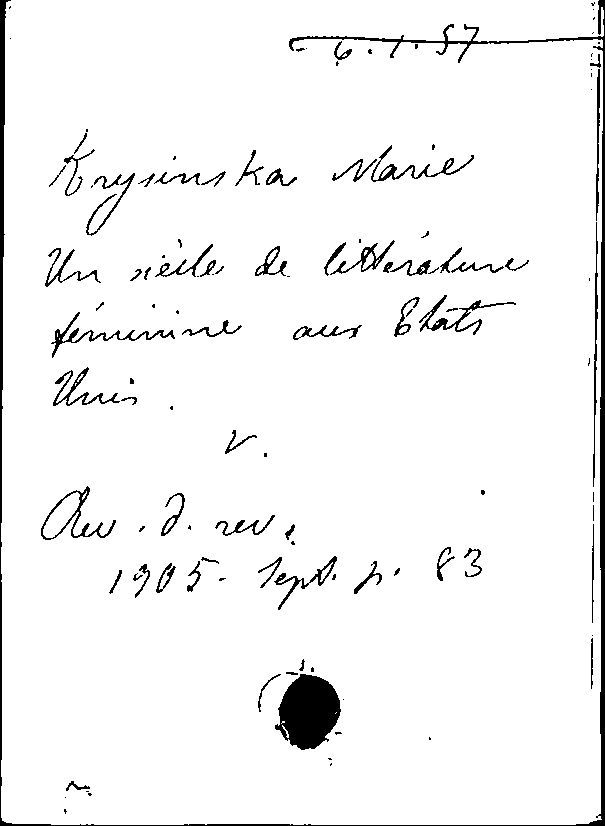 6.1.57
Krysinska Marie
Un siècle de littérature
féminine aux Etats
Unis.
V.
Rev. d. rev.
1905. Sept. p. 83